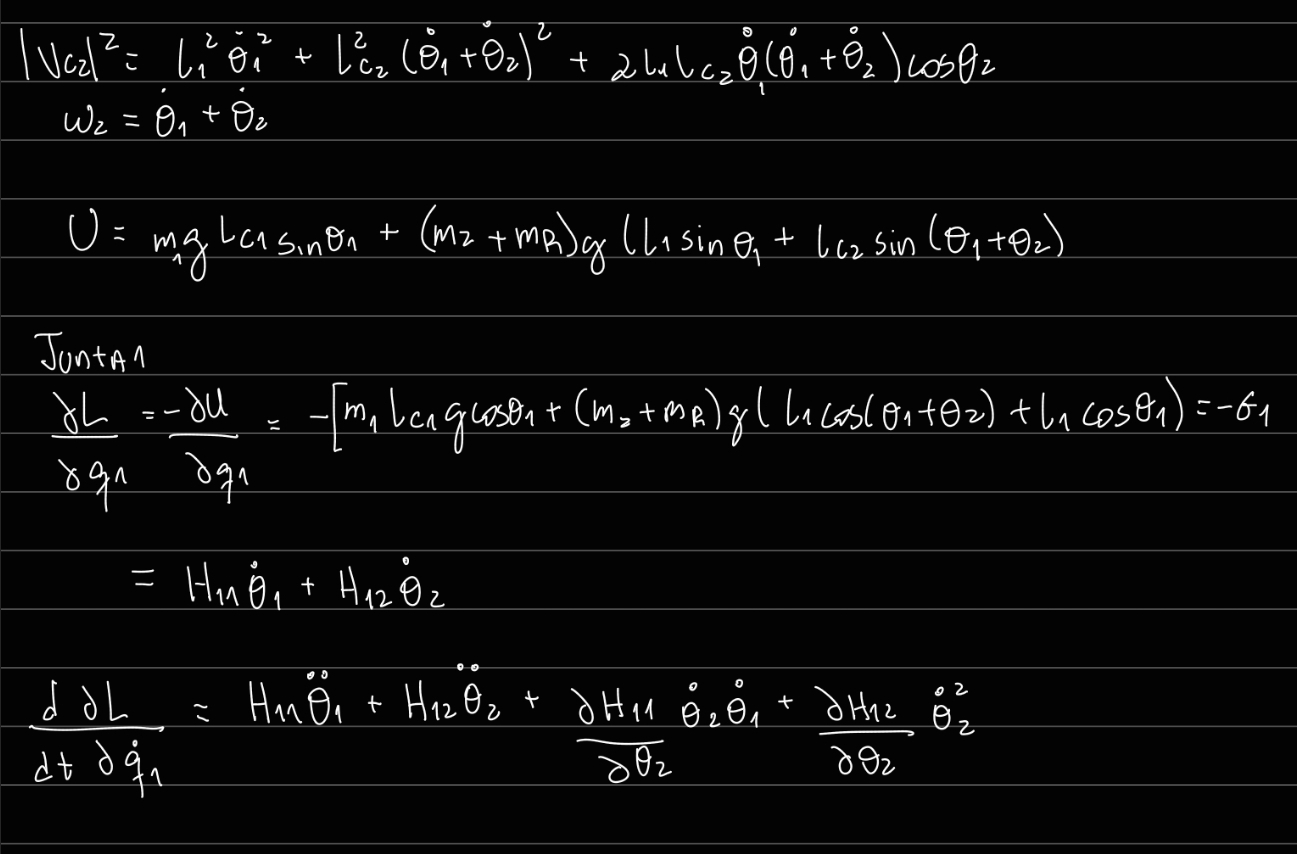 |Vc₂|² = L₁² θ̇₁² + L²c₂ (θ̇₁ + θ̇₂)² + 2L₁Lc₂ θ̇₁(θ̇₁ + θ̇₂) cosθ₂
ω₂ = θ̇₁ + θ̇₂
U = m₁g Lc₁ sinθ₁ + (m₂ + mR)g (L₁ sin θ₁ + Lc₂ sin (θ₁+θ₂)
Junta 1
∂L/∂q₁ = -∂U/∂q₁ = -[m₁ Lc₁ g cosθ₁ + (m₂ + mR)g ( L₁ cos(θ₁+θ₂) + L₁ cosθ₁) = -G₁
= H₁₁θ̇₁ + H₁₂θ̇₂
d ∂L/dt ∂q̇₁ = H₁₁θ̈₁ + H₁₂θ̈₂ + ∂H₁₁/∂θ₂ θ̇₂θ̇₁ + ∂H₁₂/∂θ₂ θ̇₂²